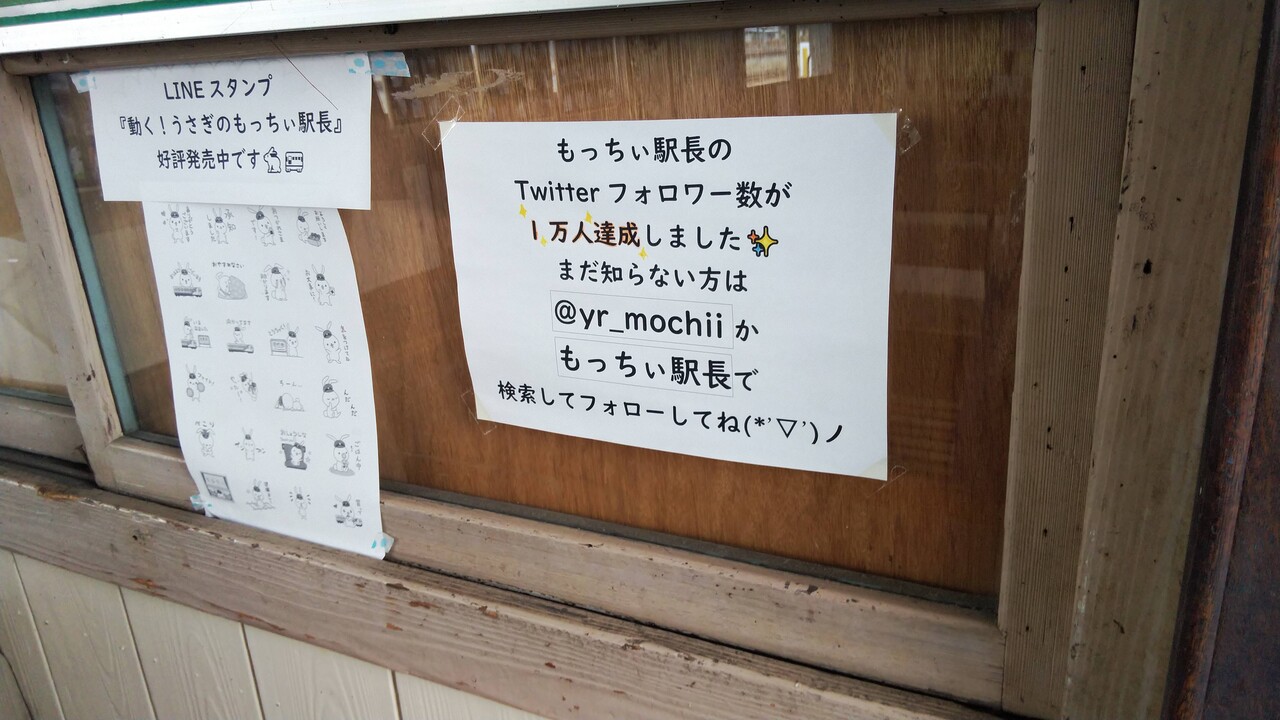 LINEスタンプ
『動く！うさぎのもっちぃ駅長』
好評発売中です
もっちぃ駅長の
Twitterフォロワー数が
1万人達成しました
まだ知らない方は
@yr_mochii か
もっちぃ駅長で
検索してフォローしてね(*'▽')ノ
おやすみなさい